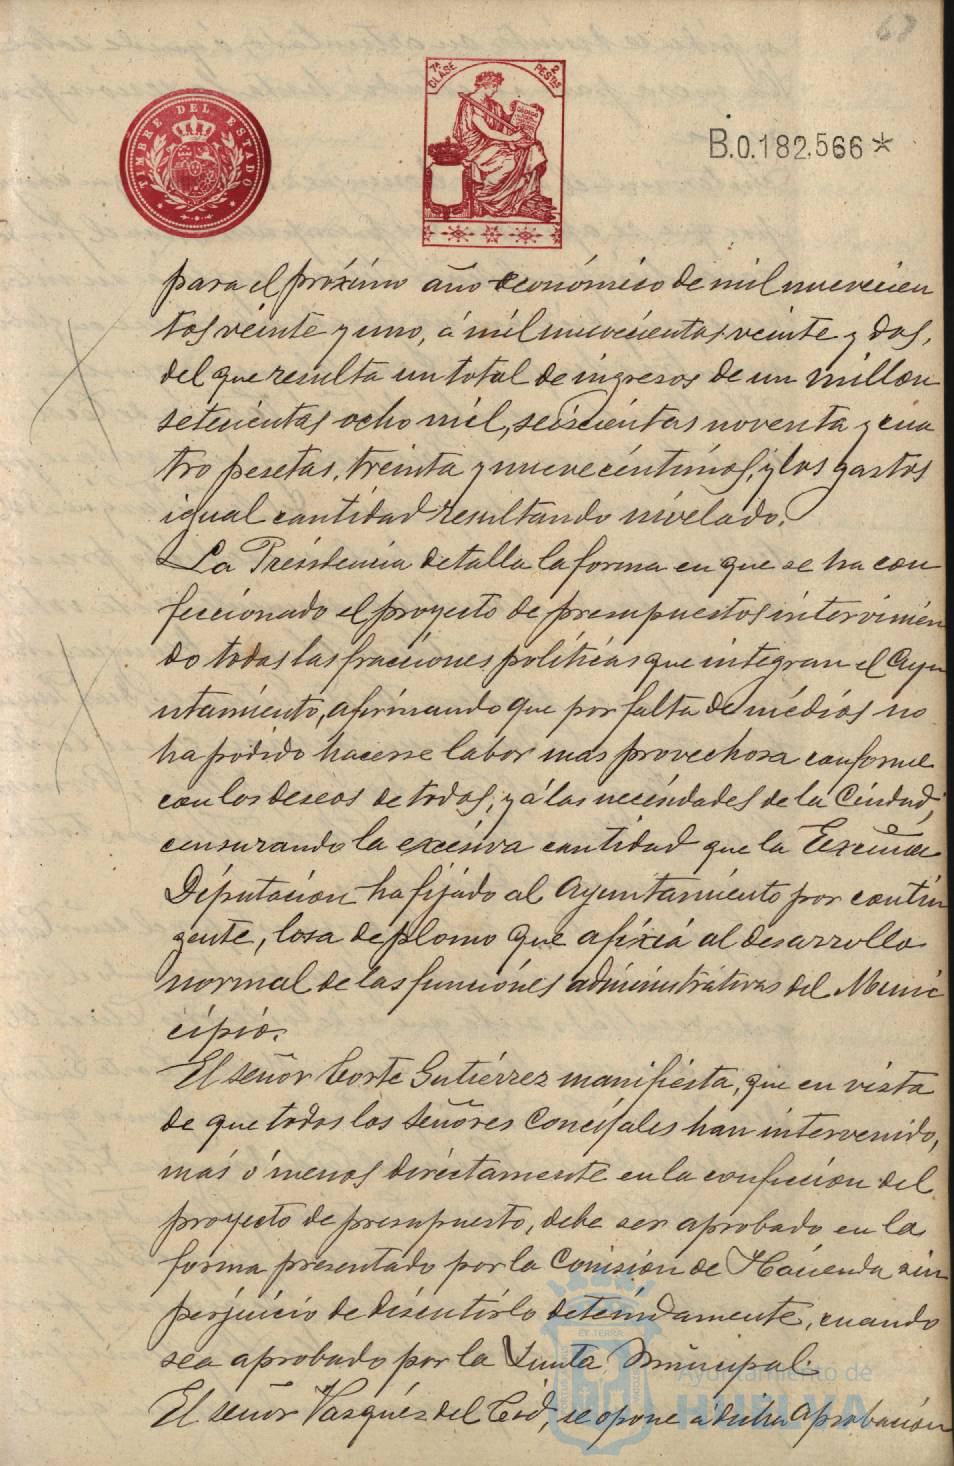 68
TIMBRE DEL ESTADO
7ª CLASE
2 PESTAS
B.0.182.566*
para el próximo año económico de mil nuevecien
tos veinte y uno, á mil nuevecientos veinte y dos,
del que resulta un total de ingresos de un millon
setecientas ocho mil, seiscientas noventa y cua
tro pesetas, treinta y nueve céntimos, y los gastos
igual cantidad resultando nivelado.
La Presidencia detalla la forma en que se ha con
feccionado el proyecto de presupuestos intervinién
do todas las fracciones políticas que integran el Ayu
ntamiento, afirmando que por falta de médios no
ha podido hacerse labor mas provechosa conforme
con los deseos de todos, y á las necesidades de la Ciudad,
censurando la excesiva cantidad que la Excma
Diputación ha fijado al Ayuntamiento por contin
gente, losa de plomo que afixiá al desarrollo
normal de las funciones administrativas del Muni
cipio.
El señor Corte Gutiérrez manifiesta, que en vista
de que todos los señores Concejales han intervenido,
más ó menos diréctamente en la confeccion del
proyecto de presupuesto, debe ser aprobado en la
forma presentado por la Comisión de Hacienda sin
perjuicio de discutirlo detenidamente, cuando
sea aprobado por la Junta Municipal.
El señor Vasquéz del Cid, se opone á dicha aprobación
Ayuntamiento de
HUELVA